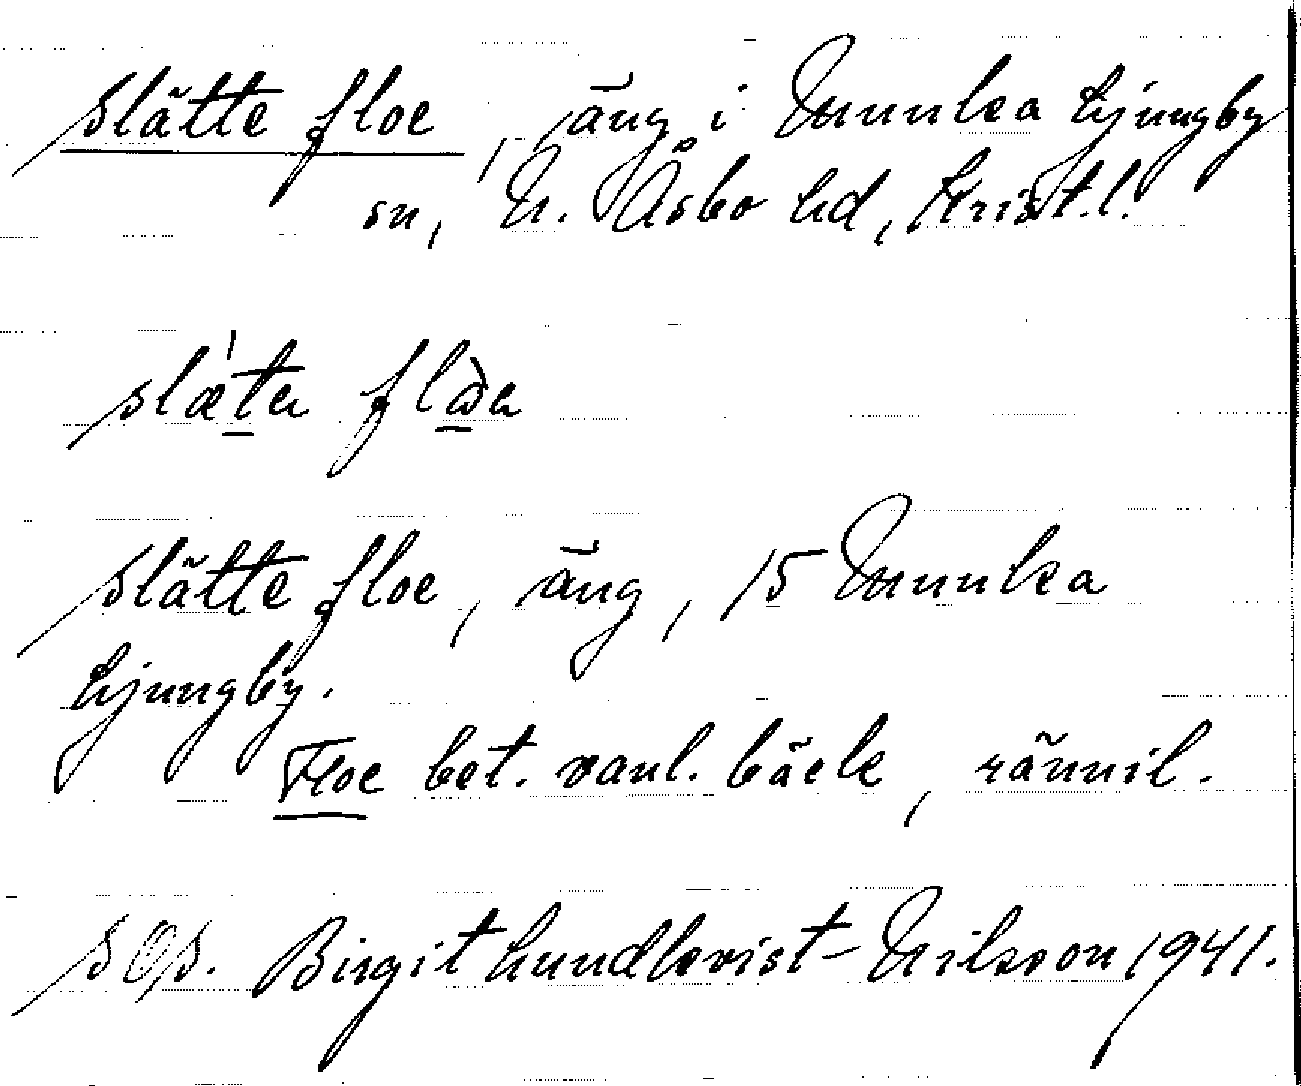 slätte floe, äng i Munka Ljungby
sn, N. Åsbo hd, Krist. l.
slæ'ta flɔ̀a
slätte floe, äng, 15 Munka
Ljungby.
Floe bet. vanl. bäck, rännil.
SOS. Birgit Lundkvist-Nilsson 1941.